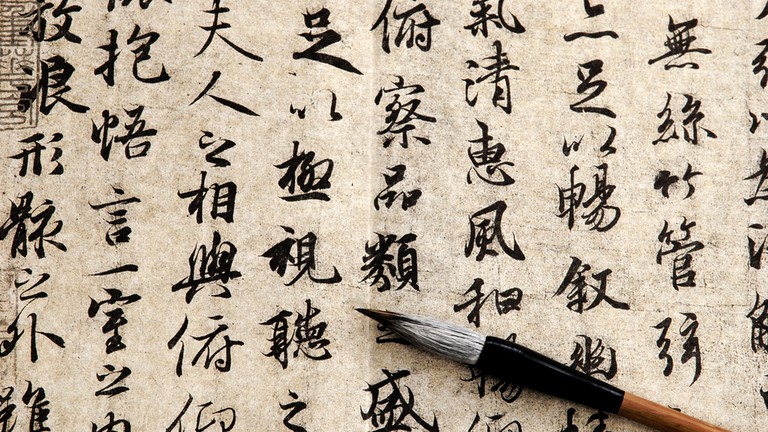 無絲竹管弦
亦足以暢叙幽情
氣清惠風和暢仰
俯察品類之盛
足以極視聽之
夫人之相與俯仰
抱悟言一室之內
放浪形骸之外雖